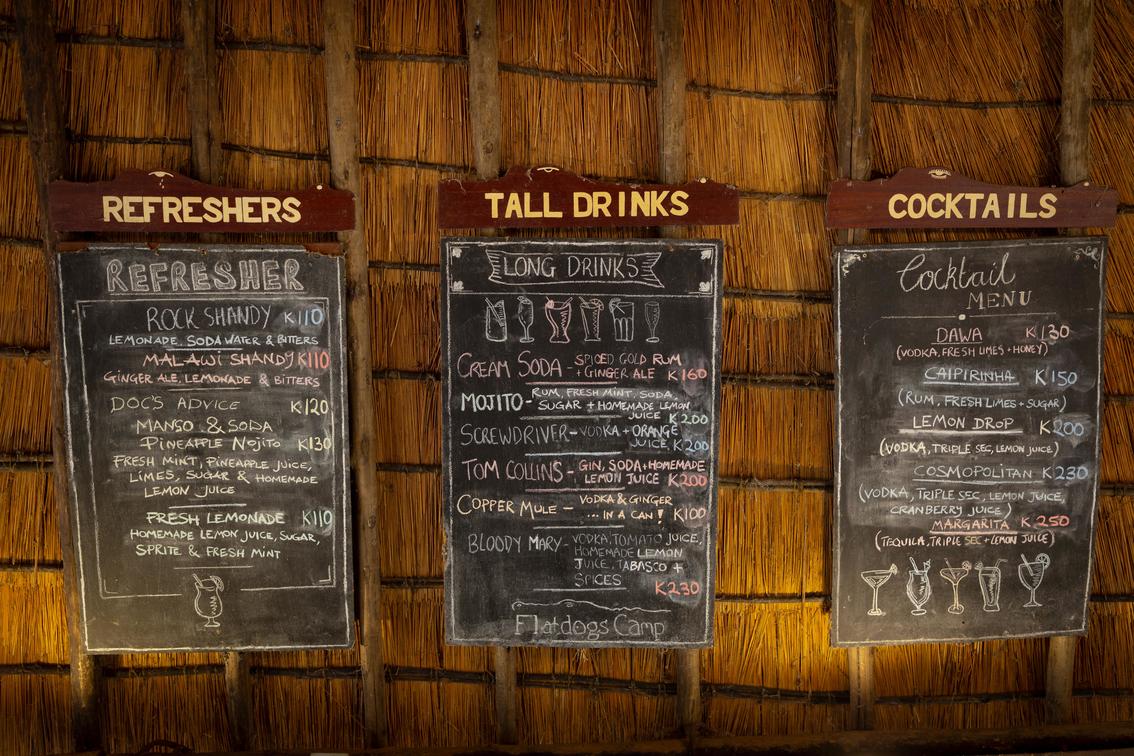 REFRESHERS
REFRESHER
ROCK SHANDY K110
LEMONADE, SODA WATER & BITTERS
MALAWI SHANDY K110
GINGER ALE, LEMONADE & BITTERS
DOC'S ADVICE K120
MANSO & SODA
PINEAPPLE NOJITO K130
FRESH MINT, PINEAPPLE JUICE,
LIMES, SUGAR & HOMEMADE
LEMON JUICE
FRESH LEMONADE K110
HOMEMADE LEMON JUICE, SUGAR,
SPRITE & FRESH MINT
TALL DRINKS
LONG DRINKS
CREAM SODA - SPICED GOLD RUM
+ GINGER ALE K160
MOJITO - RUM, FRESH MINT, SODA,
SUGAR + HOMEMADE LEMON
JUICE K200
SCREWDRIVER - VODKA + ORANGE
JUICE K200
TOM COLLINS - GIN, SODA + HOMEMADE
LEMON JUICE K200
COPPER MULE - VODKA & GINGER
... IN A CAN! K100
BLOODY MARY - VODKA, TOMATO JUICE,
HOMEMADE LEMON
JUICE, TABASCO +
SPICES
K230
Flatdogs Camp
COCKTAILS
Cocktail
MENU
DAWA K130
(VODKA, FRESH LIMES + HONEY)
CAIPIRINHA K150
(RUM, FRESH LIMES + SUGAR)
LEMON DROP K200
(VODKA, TRIPLE SEC, LEMON JUICE)
COSMOPOLITAN K230
(VODKA, TRIPLE SEC, LEMON JUICE,
CRANBERRY JUICE)
MARGARITA K250
(TEQUILA, TRIPLE SEC + LEMON JUICE)